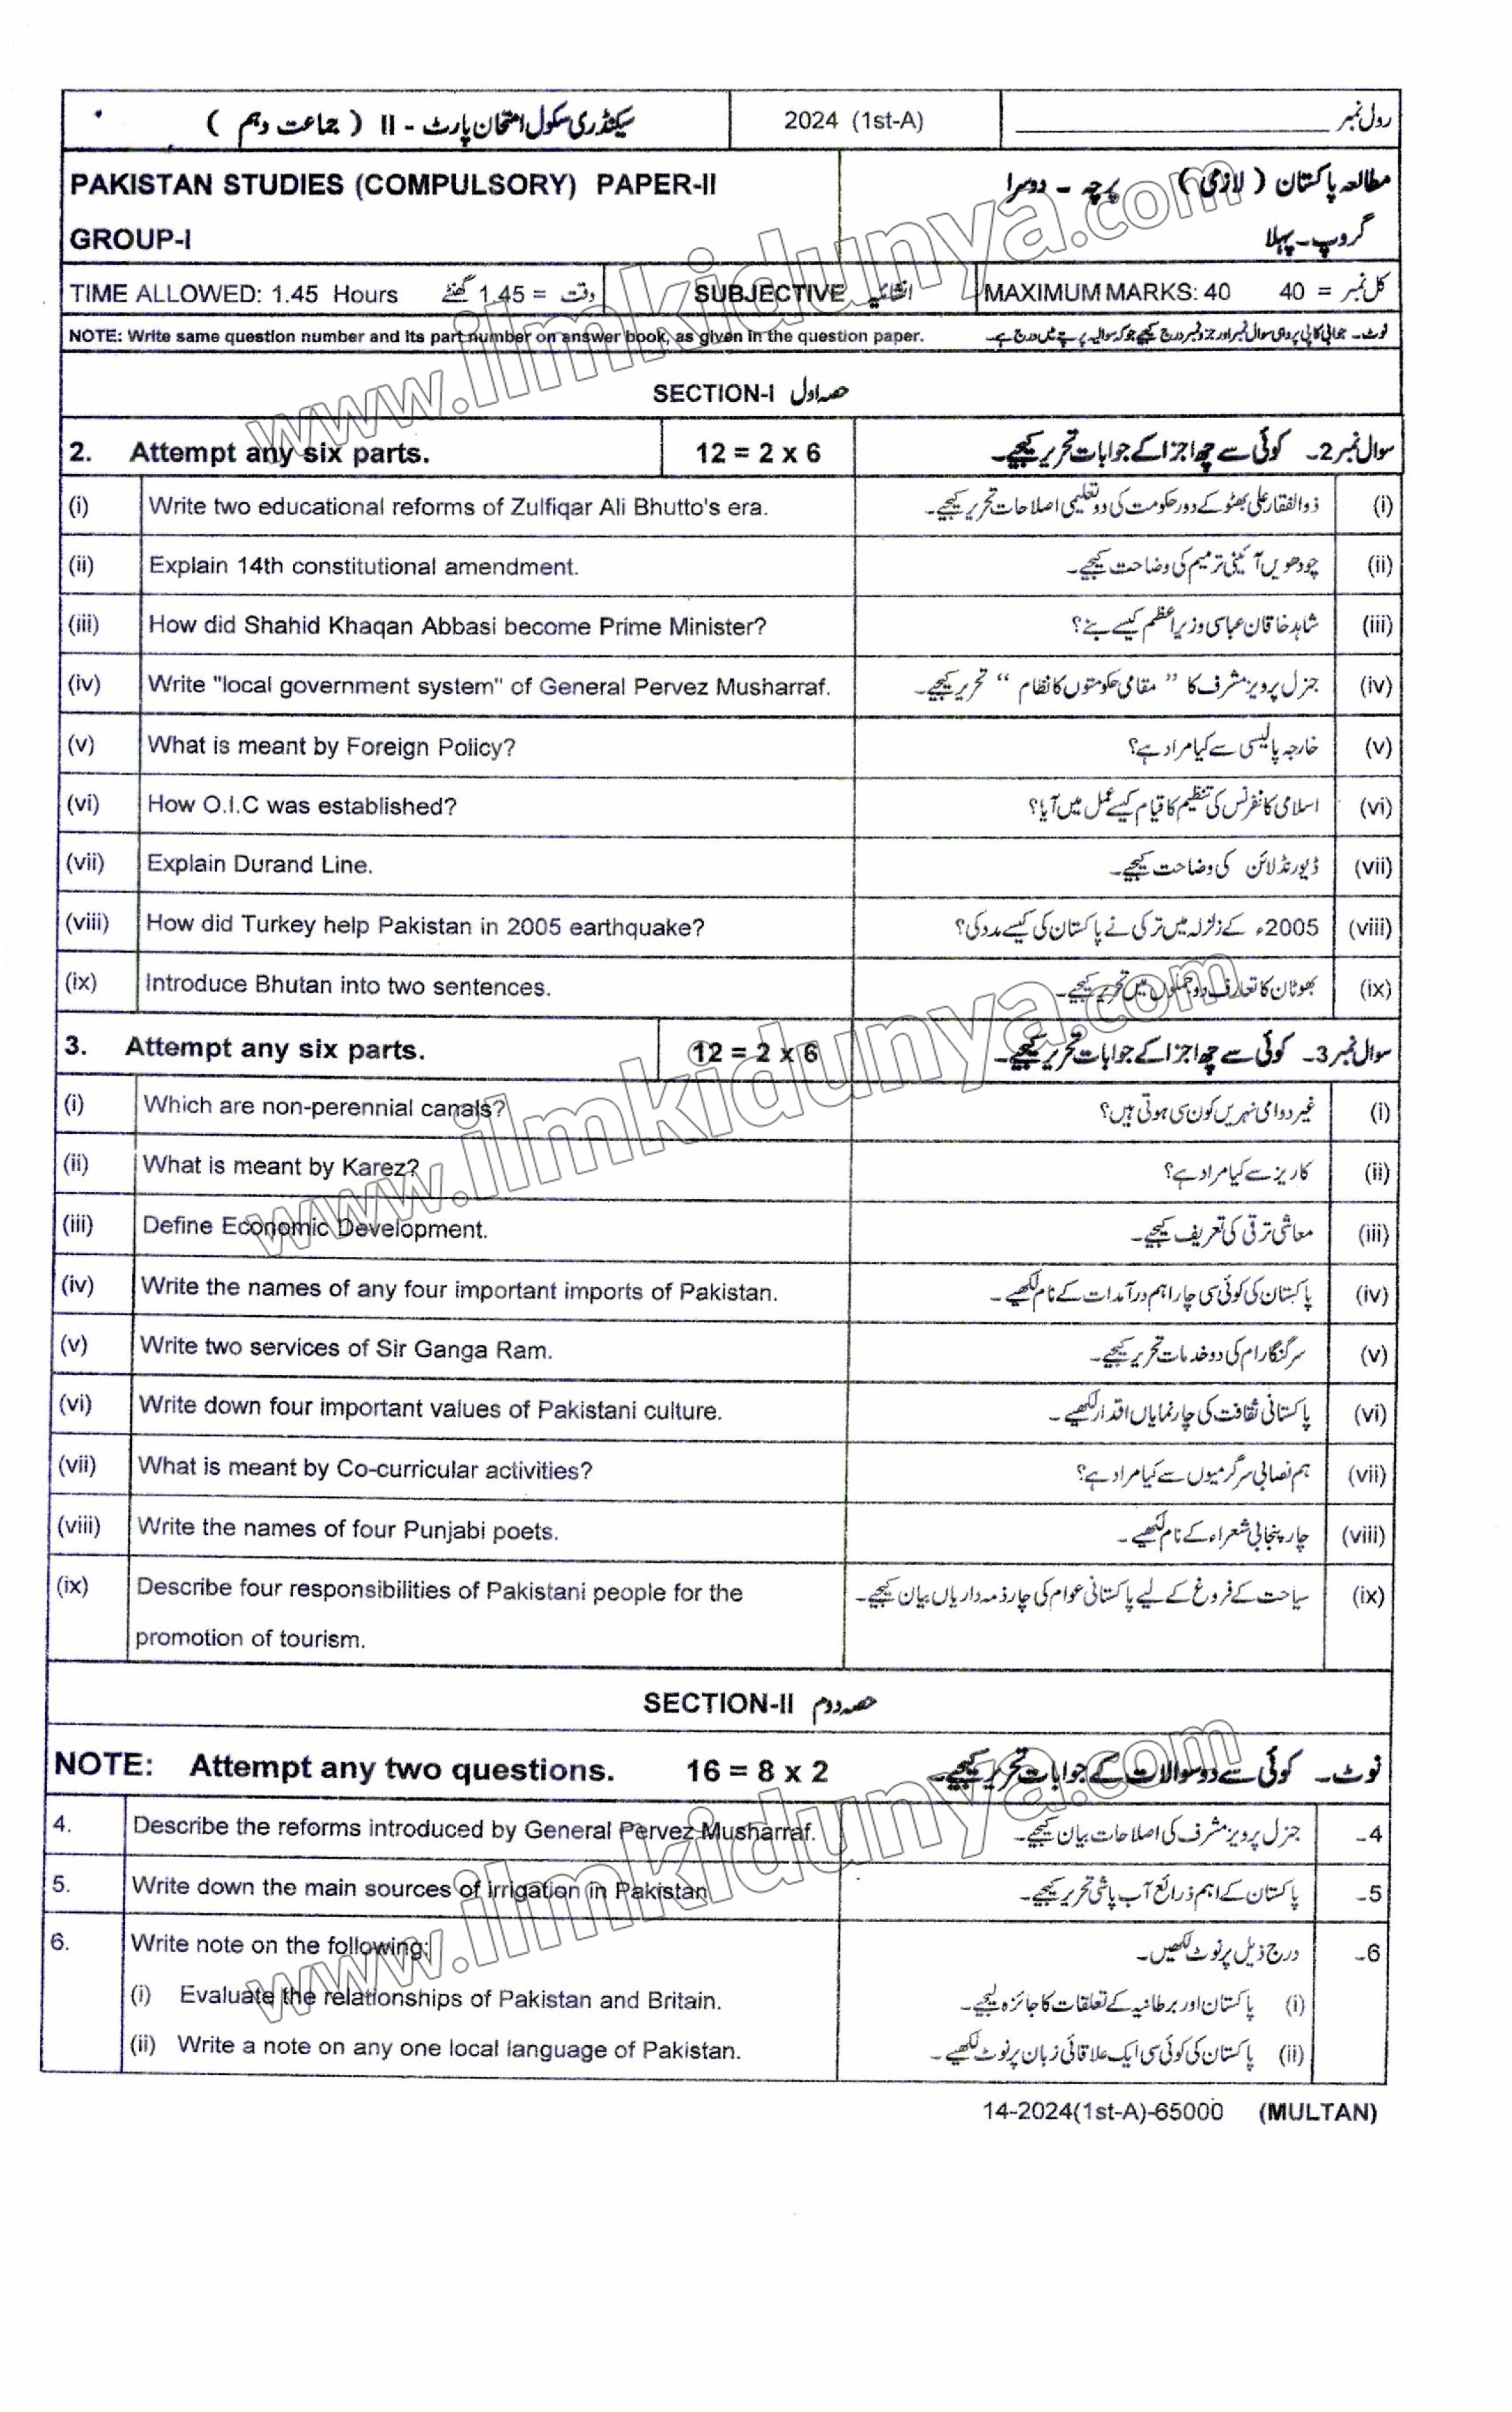 سیکنڈری سکول امتحان پارٹ - II ( جماعت دہم ) 2024 (1st-A) رول نمبر
PAKISTAN STUDIES (COMPULSORY) PAPER-II مطالعہ پاکستان ( لازمی ) پرچہ - دوسرا
GROUP-I گروپ - پہلا
TIME ALLOWED: 1.45 Hours وقت = 1.45 گھنٹے SUBJECTIVE انشائیہ MAXIMUM MARKS: 40 کل نمبر = 40
NOTE: Write same question number and its part number on answer book, as given in the question paper. نوٹ۔ جوابی کاپی پر وہی سوال نمبر اور جزو نمبر درج کیجیے جو کہ سوالیہ پرچے میں درج ہے۔
SECTION-I حصہ اول
2. Attempt any six parts. 12 = 2 x 6 سوال نمبر 2۔ کوئی سے چھ اجزا کے جوابات تحریر کیجیے۔
(i) Write two educational reforms of Zulfiqar Ali Bhutto's era. ذوالفقار علی بھٹو کے دور حکومت کی دو تعلیمی اصلاحات تحریر کیجیے۔ (i)
(ii) Explain 14th constitutional amendment. چودھویں آئینی ترمیم کی وضاحت کیجیے۔ (ii)
(iii) How did Shahid Khaqan Abbasi become Prime Minister? شاہد خاقان عباسی وزیراعظم کیسے بنے؟ (iii)
(iv) Write "local government system" of General Pervez Musharraf. جنرل پرویز مشرف کا ” مقامی حکومتوں کا نظام “ تحریر کیجیے۔ (iv)
(v) What is meant by Foreign Policy? خارجہ پالیسی سے کیا مراد ہے؟ (v)
(vi) How O.I.C was established? اسلامی کانفرنس کی تنظیم کا قیام کیسے عمل میں آیا؟ (vi)
(vii) Explain Durand Line. ڈیورنڈ لائن کی وضاحت کیجیے۔ (vii)
(viii) How did Turkey help Pakistan in 2005 earthquake? 2005ء کے زلزلہ میں ترکی نے پاکستان کی کیسے مدد کی؟ (viii)
(ix) Introduce Bhutan into two sentences. بھوٹان کا تعارف دو جملوں میں تحریر کیجیے۔ (ix)
3. Attempt any six parts. 12 = 2 x 6 سوال نمبر 3۔ کوئی سے چھ اجزا کے جوابات تحریر کیجیے۔
(i) Which are non-perennial canals? غیر دوامی نہریں کون سی ہوتی ہیں؟ (i)
(ii) What is meant by Karez? کاریز سے کیا مراد ہے؟ (ii)
(iii) Define Economic Development. معاشی ترقی کی تعریف کیجیے۔ (iii)
(iv) Write the names of any four important imports of Pakistan. پاکستان کی کوئی سی چار اہم درآمدات کے نام لکھیے۔ (iv)
(v) Write two services of Sir Ganga Ram. سر گنگا رام کی دو خدمات تحریر کیجیے۔ (v)
(vi) Write down four important values of Pakistani culture. پاکستانی ثقافت کی چار نمایاں اقدار لکھیے۔ (vi)
(vii) What is meant by Co-curricular activities? ہم نصابی سرگرمیوں سے کیا مراد ہے؟ (vii)
(viii) Write the names of four Punjabi poets. چار پنجابی شعراء کے نام لکھیے۔ (viii)
(ix) Describe four responsibilities of Pakistani people for the سیاحت کے فروغ کے لیے پاکستانی عوام کی چار ذمہ داریاں بیان کیجیے۔ (ix)
promotion of tourism.
SECTION-II حصہ دوم
NOTE: Attempt any two questions. 16 = 8 x 2 نوٹ۔ کوئی سے دو سوالات کے جوابات تحریر کیجیے۔
4. Describe the reforms introduced by General Pervez Musharraf. جنرل پرویز مشرف کی اصلاحات بیان کیجیے۔ 4۔
5. Write down the main sources of irrigation in Pakistan. پاکستان کے اہم ذرائع آب پاشی تحریر کیجیے۔ 5۔
6. Write note on the following: درج ذیل پر نوٹ لکھیں۔ 6۔
(i) Evaluate the relationships of Pakistan and Britain. (i) پاکستان اور برطانیہ کے تعلقات کا جائزہ لیجیے۔
(ii) Write a note on any one local language of Pakistan. (ii) پاکستان کی کوئی سی ایک علاقائی زبان پر نوٹ لکھیے۔
14-2024(1st-A)-65000 (MULTAN)
www.ilmkidunya.com
www.ilmkidunya.com
www.ilmkidunya.com